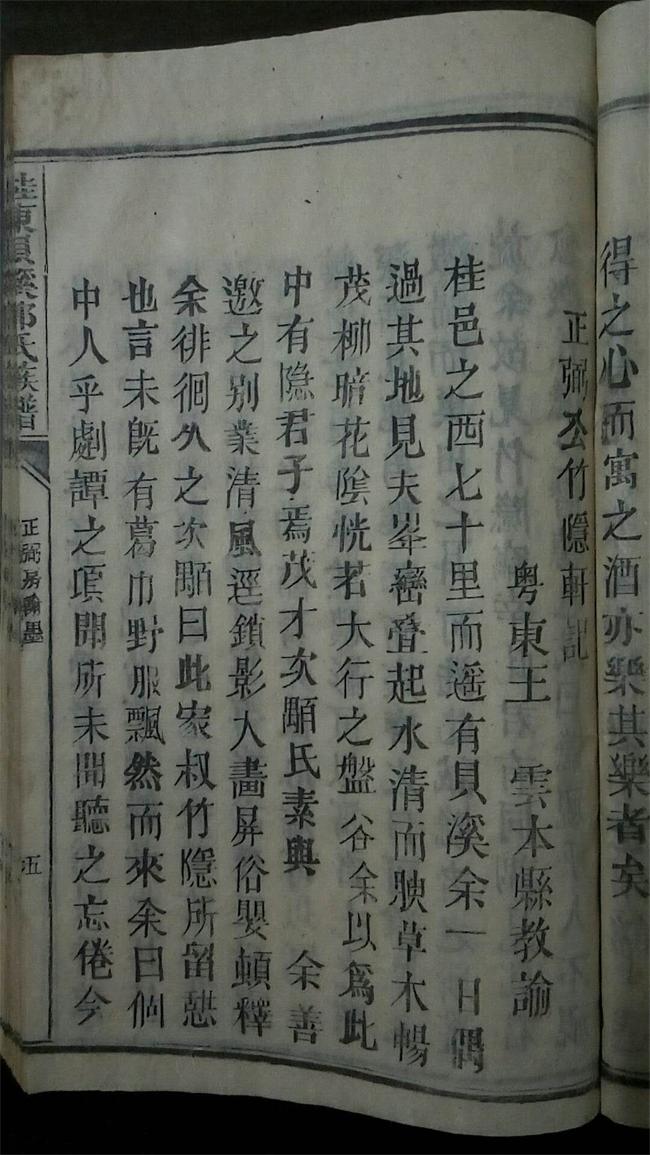 得之心而寓之酒亦樂其樂者矣
正弼公竹隱軒記
粤東王雲本縣教諭
桂邑之西七十里而遥有貝溪余一日偶
過其地見夫峯巒疊起水清而腴草木暢
茂柳暗花陰恍若大行之盤谷余以為此
中有隐君子焉茂才次顒氏素與余善
邀之别業清風逕鎖影入畵屏俗嬰頓釋
余徘徊久之次顒曰此家叔竹隱所留憇
也言未旣有葛巾野服飄然而來余曰個
中人乎劇譚之頃聞所未聞聽之忘倦今
桂東貝溪郭氏族譜
正弼房翰墨
五